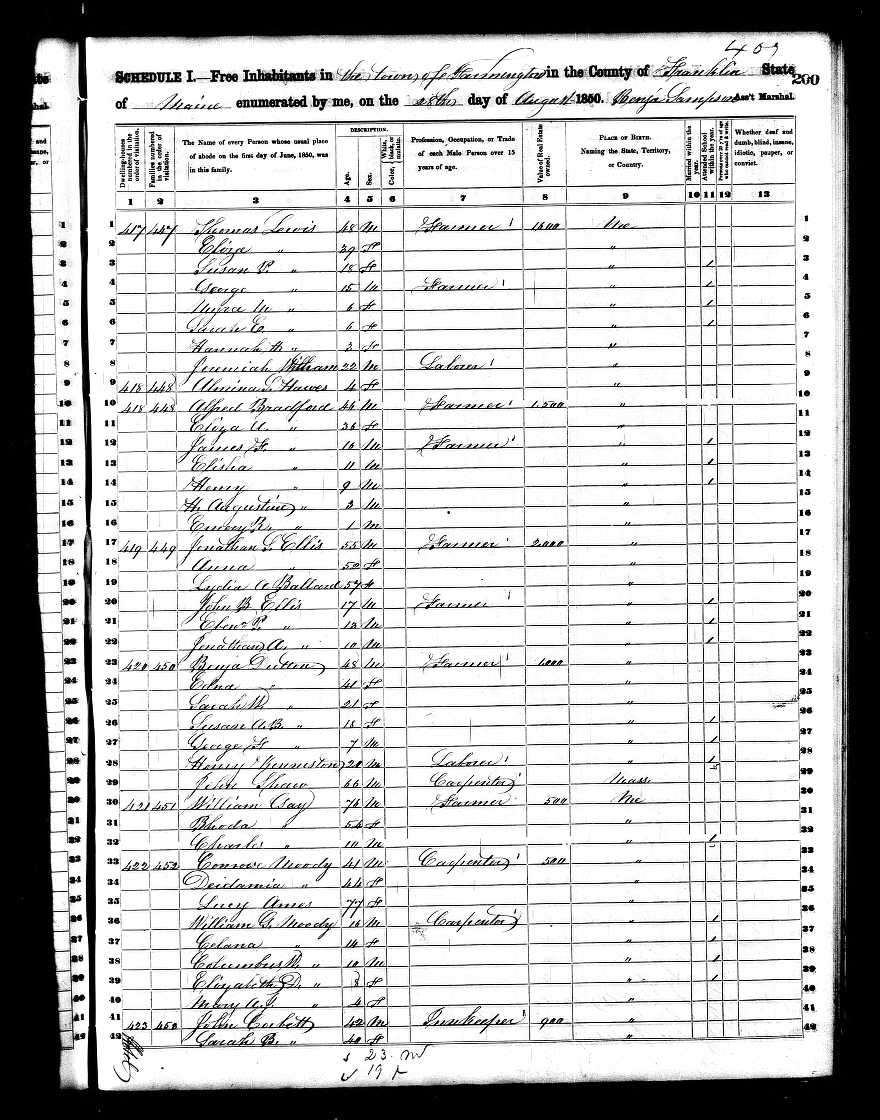 407
SCHEDULE I.—Free Inhabitants in the town of Farmington in the County of Franklin State 200
of Maine enumerated by me, on the 28th day of August 1850. Benja Sampson Ass't Marshal.
DESCRIPTION.
Dwelling-houses numbered in the order of visitation. Families numbered in the order of visitation. The Name of every Person whose usual place of abode on the first day of June, 1850, was in this family. Age. Sex. Color, White, black, or mulatto. Profession, Occupation, or Trade of each Male Person over 15 years of age. Value of Real Estate owned. PLACE OF BIRTH. Naming the State, Territory, or Country. Married within the year. Attended School within the year. Whether deaf and dumb, blind, insane, idiotic, pauper, or convict.
1 2 3 4 5 6 7 8 9 10 11 12 13
1 417 447 Thomas Lewis 48 M Farmer 1
2 Eliza " 39 F " 2
3 Susan P. " 18 F " 1 3
4 George " 15 M Farmer " 1 4
5 " 6 F " 1 5
6 Sarah E. " 6 F " 1 6
7 Hannah M " 3 F " 7
8 Jeremiah Witham 22 M Laborer " 8
9 418 448 Almina L Hawes 4 F " 9
10 418 448 Alfred Bradford 44 M Farmer 1,500 " 10
11 Eliza A. " 36 F " 11
12 James F. " 16 M Farmer " 1 12
13 Elisha " 11 M " 1 13
14 Henry " 9 M " 1 14
15 Augustine " 3 M " 15
16 Emery B. " 1 M " 16
17 419 449 Jonathan L Ellis 55 M Farmer 2,000 " 17
18 Anna " 50 F " 18
19 Lydia A Ballard 57 F " 19
20 John B Ellis 17 M Farmer " 1 20
21 Eben P. " 13 M " 1 21
22 Jonathan A. " 10 M " 1 22
23 420 450 Benja Dutton 48 M Farmer 1000 " 23
24 Edna " 41 F " 24
25 Sarah M " 21 F " 25
26 Susan A.B. " 18 F " 1 26
27 George F " 7 M " 1 27
28 Henry Kenneston 20 M Laborer " 1 28
29 John Shaw 66 M Carpenter Mass 29
30 421 451 William Day 76 M Farmer 500 Me 30
31 Rhoda " 54 F " 31
32 Charles " 10 M " 1 32
33 422 452 Moody 41 M Carpenter 500 " 33
34 Deidamia " 44 F " 34
35 Lucy Ames 77 F " 35
36 William G. Moody 16 M Carpenter " 1 36
37 " 14 F " 1 37
38 Columbus W. " 10 M " 1 38
39 Elizabeth D. " 8 F " 1 39
40 Mary A.J. " 4 F " 40
41 423 453 John Corbett 42 M Innkeeper 900 " 41
42 Sarah B. " 40 F " 42
23 m
19 f